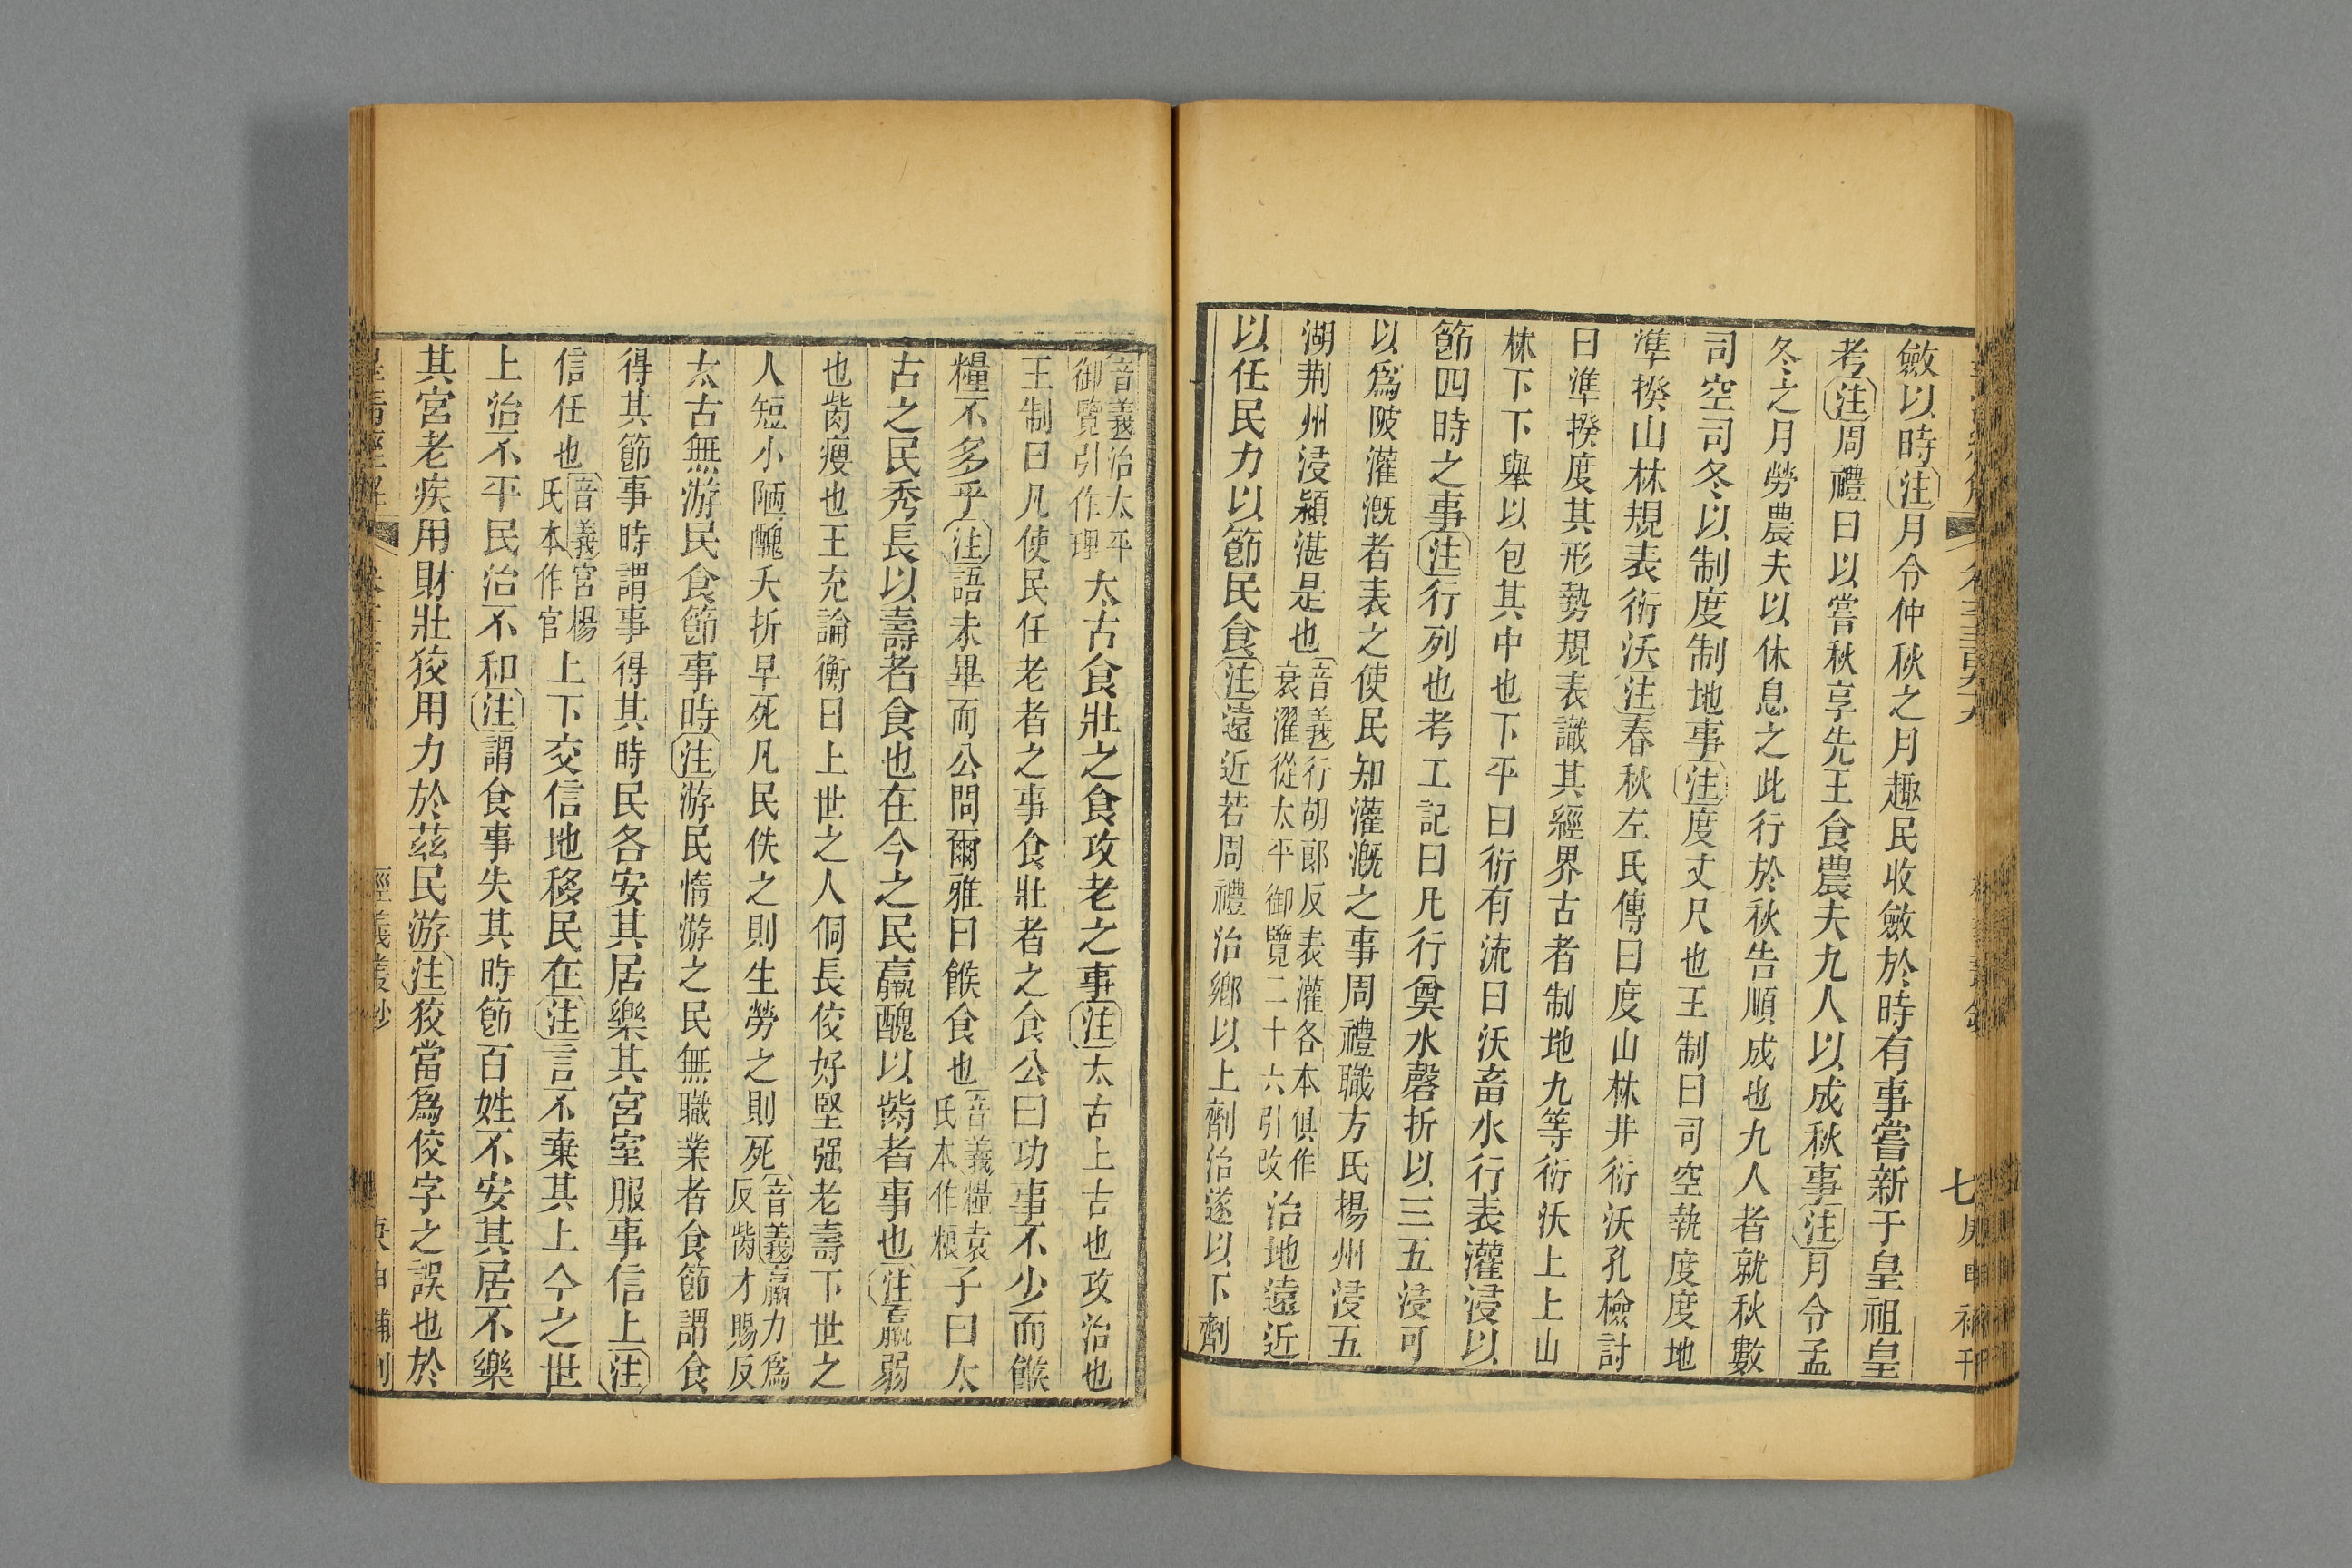 斂以時注月令仲秋之月趣民收斂於時有事嘗新于皇祖皇
考注周禮曰以嘗秋享先王食農夫九人以成秋事注月令孟
冬之月勞農夫以休息之此行於秋告順成也九人者就秋數
司空司冬以制度制地事注度丈尺也王制曰司空執度度地
準揆山林規表衍沃注春秋左氏傳曰度山林井衍沃孔檢討
曰準揆度其形勢規表識其經界古者制地九等衍沃上上山
林下下舉以包其中也下平曰衍有流曰沃畜水行表灌浸以
節四時之事注行列也考工記曰凡行奠水磬折以三五浸可
以爲陂灌漑者表之使民知灌漑之事周禮職方氏揚州浸五
湖荆州浸潁湛是也音義行胡郎反表灌各本俱作衰濯從太平御覽二十六引改治地遠近
以任民力以節民食注遠近若周禮治鄉以上劑治遂以下劑
七
音義治太平御覽引作理太古食壯之食攻老之事注太古上古也攻治也
王制曰凡使民任老者之事食壯者之食公曰功事不少而餱
糧不多乎注語未畢而公問爾雅曰餱食也音義糧袁氏本作粮子曰太
古之民秀長以壽者食也在今之民羸醜以胔者事也注羸弱
也胔瘦也王充論衡曰上世之人侗長佼好堅强老壽下世之
人短小陋醜夭折早死凡民佚之則生勞之則死音義羸力爲反胔才賜反
太古無游民食節事時注游民惰游之民無職業者食節謂食
得其節事時謂事得其時民各安其居樂其宮室服事信上注
信任也音義宮楊氏本作官上下交信地移民在注言不棄其上今之世
上治不平民治不和注謂食事失其時節百姓不安其居不樂
其宮老疾用財壯狡用力於茲民游注狡當爲佼字之誤也於
皇清經解
經義叢鈔
庚申補刊